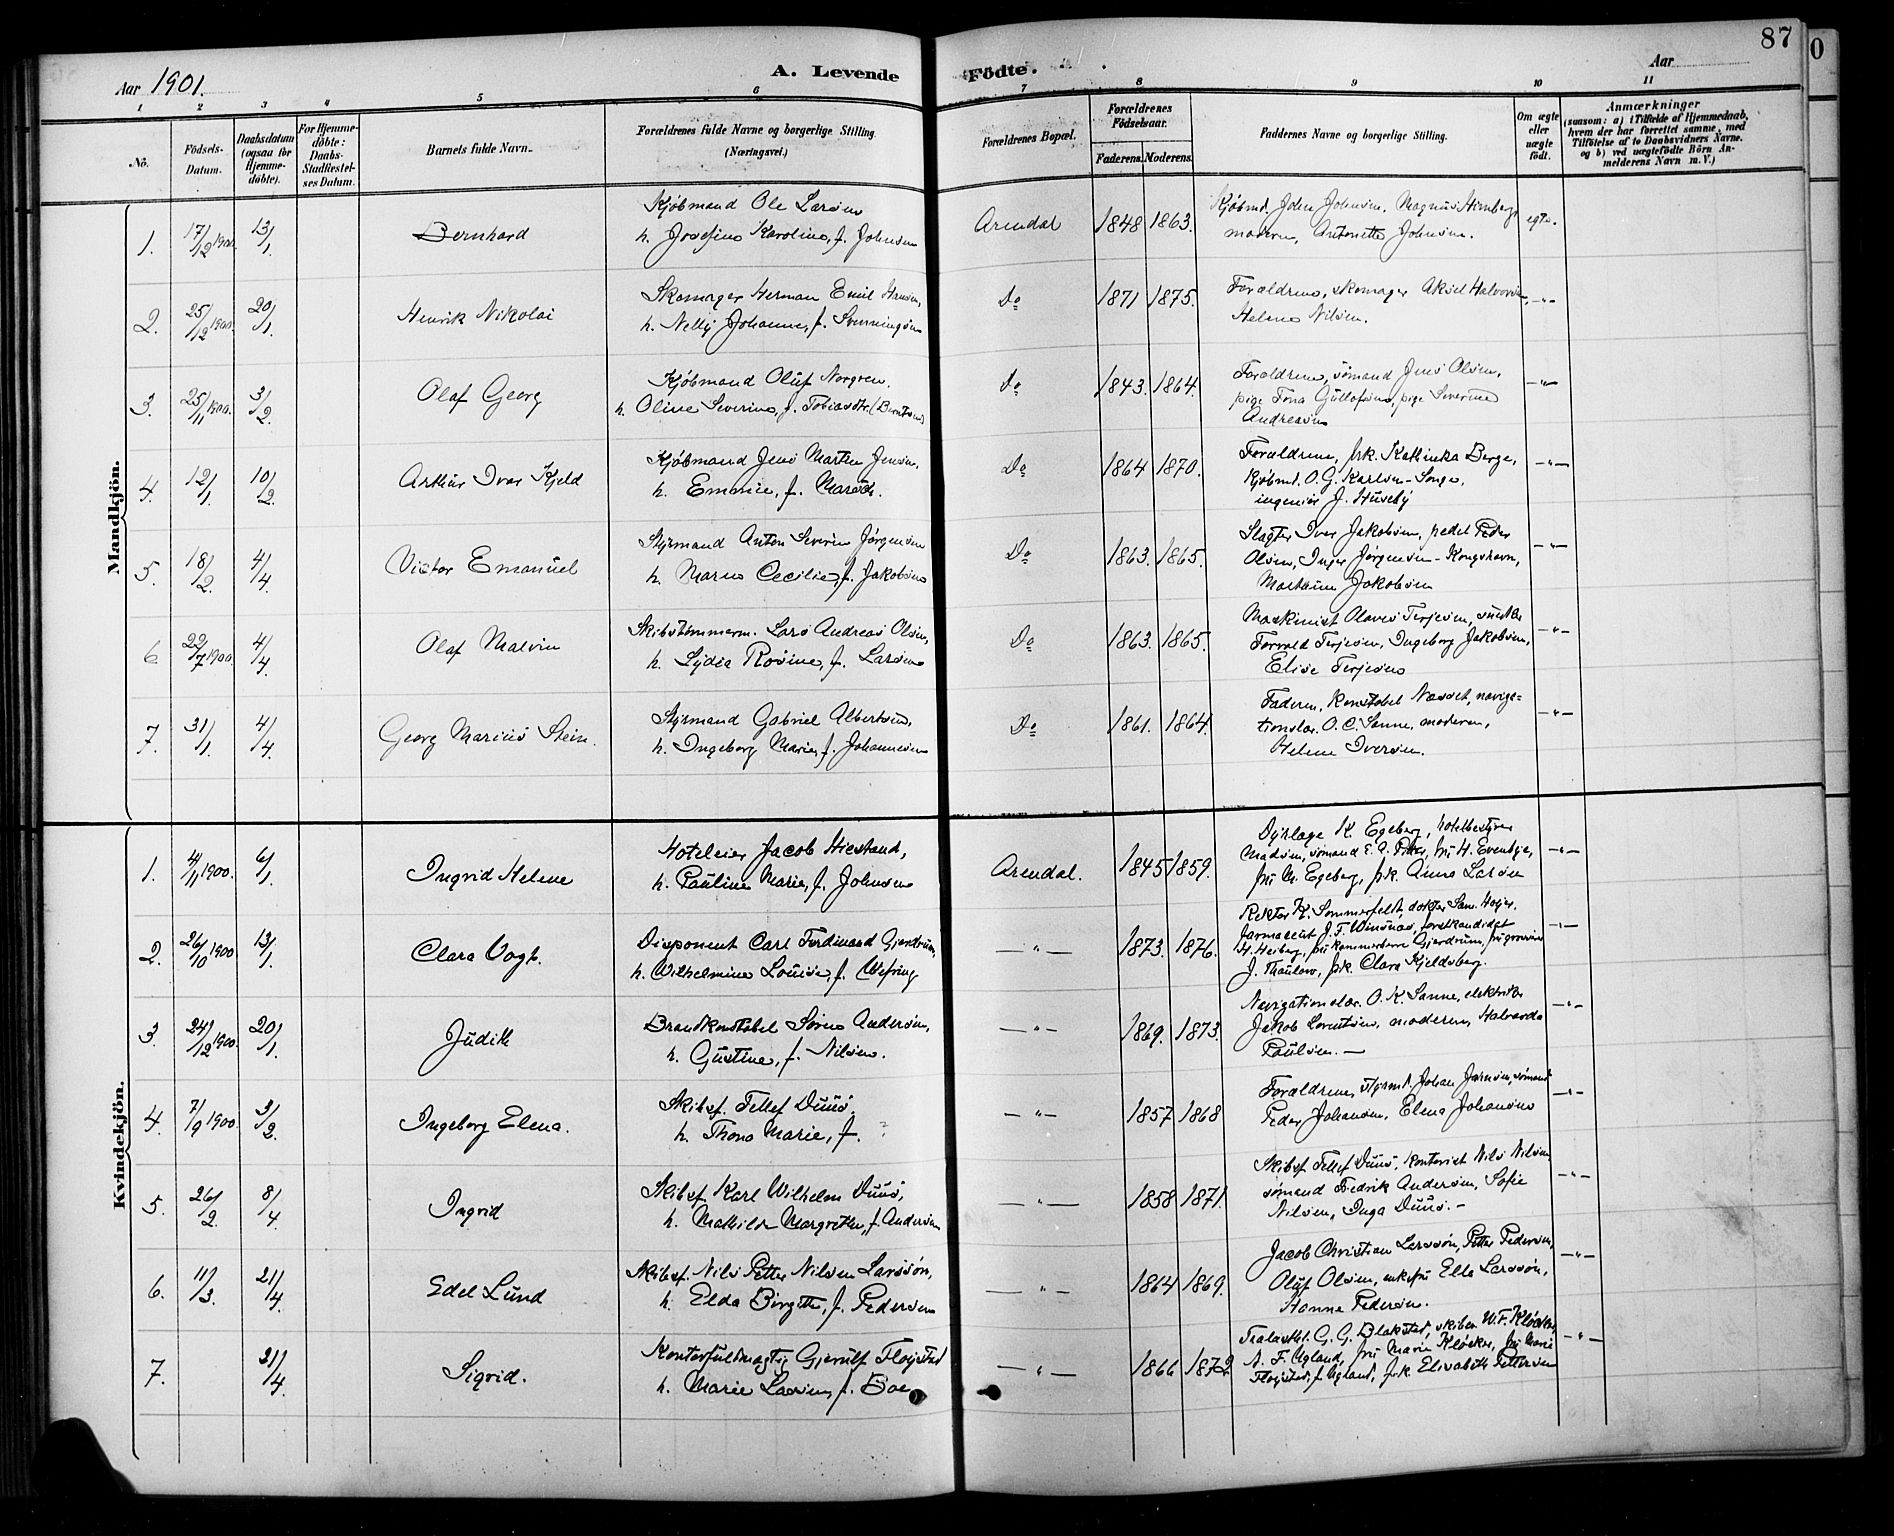 87
0
Aar 1901.
A. Levende Födte.
Aar
1 2 3 4 5 6 7 8 9 10 11
No.
Födsels-Datum.
Daabsdatum (ogsaa for Hjemme-döbte).
For Hjemme-döbte: Daabs-Stadfæstel-ses Datum.
Barnets fulde Navn.
Forældrenes fulde Navne og borgerlige Stilling.
(Næringsvei.)
Forældrenes Bopæl.
Forældrenes Födselsaar.
Faderens. Moderens.
Faddernes Navne og borgerlige Stilling.
Om ægte eller uægte födt.
Anmærkninger
(saasom: a) i Tilfælde af Hjemmedaab,
hvem der har forrettet samme, med
Tilföielse af to Daabsvidners Navne,
og b) ved uægtefödte Börn An-
melderens Navn m. V.)
Mandkjön.
1. 17/12 1900. 13/1 Bernhard
Kjöbmand Ole Larsen
h. Josefine Karoline, f. Johnsen
Arendal 1848 1863.
Kjöbmd. John Johnsen, Magnus
moderen, Antonette Johnsen.
egte.
2. 25/12 1900. 20/1 Henrik Nikolai
Skomager Herman Emil Hansen,
h. Nelly Johanne, f. Svenningsen
Do 1871 1875.
Forældrene, skomager Aksel Halvorsen
Helene Nilsen.
—"—
3. 25/11 1900. 3/2 Olaf Georg
Kjöbmand Oluf Norgren.
h. Oline Severine, f. Tobiasdtr. (Berntsen)
Do 1843. 1864.
Forældrene, sömand Jens Olsen,
pige Tona Gullofsen, pige Severine
Andreasen
—"—
4. 12/1 10/2 Arthur Ivar Kjeld
Kjöbmand Jens Martin Jensen,
h. Emmie, f. Marsch.
Do 1864 1870.
Forældrene, frk. Kathinka Berge,
Kjöbmd. O. G. Karlsen - Songe,
ingeniör J. Huseby
—"—
5. 18/2 4/4 Victor Emanuel
Styrmand Anton Severin Jörgensen
h. Maren Cecilie, f. Jakobsen
Do 1863. 1865.
Slagter Iver Jakobsen, pedel Peder
Olsen, Inger Jörgensen - Kongshavn,
Mathine Jakobsen
—"—
6 22/7 1900. 4/4 Olaf Malvin
Skibstömmerm. Lars Andreas Olsen,
h. Lydia Rosine, f. Larsen
Do 1863. 1865.
Maskinist Olaves Terjesen, snedker
Torvald Terjesen, Ingeborg Jakobsen,
Elise Terjesen
—"—
7. 31/1 4/4 Georg Marius Stein.
Styrmand Gabriel Albertsen,
h. Ingeborg Marie, f. Johannesen
Do 1861. 1864.
Faderen, konstabel Næsset, naviga-
tionslær. O. C. Sanne, moderen,
Helene Iversen.
—"—
Kvindekjön.
1. 4/11 1900. 6/1 Ingrid Helene
Hoteleier Jacob Hiestand,
h. Pauline Marie, f. Johnsen
Arendal. 1845 1859.
Dyrlæge K. Egeberg, hotelbestyrer
Madsen, sömand E. A. fru H. Evenbye,
fru M. Egeberg, frk. Anna Larsen
—"—
2. 26/10 1900 13/1 Clara Vogt.
Disponent Carl Ferdinand Gjerdrum,
h. Wilhelmine Louise, f. Wefring
—"— 1873. 1876.
Rektor K. Sommerfeldt, doktor Sam. Höyer.
farmaceut J. F. Winsnes, forstkandidat
H. Heiberg, fru kammerherre Gjerdrum, fru
J. Thaulow, frk. Clara Kjeldsberg.
—"—
3. 24/12 1900. 20/1 Judith
Brandkonstabel Sören Andersen,
h. Gustine, f. Nilsen.
—"— 1869. 1873.
Navigationslær. O. K. Sanne, elektriker
Jakob Lorentsen, moderen, Halvarda
Paulsen. —
—"—
4. 7/9 1900. 3/2 Ingeborg Elena.
Skibsf. Tellef Duus,
h. Thona Marie, f. ?
—"— 1857 1868
Forældrene, styrmd. Johan Jahnsen, sömand
Peder Johansen, Elena Johansen
—"—
5. 26/2. 8/4. Ingrid
Skibsf. Karl Wilhelm Duus,
h. Mathilde Margrethe, f. Andersen
—"— 1858 1871.
Skibsf. Tellef Duus, kontorist Nils Nilsen
sömand Fredrik Andersen, Sofie
Nilsen, Inga Duus. -
—"—
6. 11/3. 21/4. Edel Lund
Skibsf. Nils Petter Nilsen Larssön,
h. Elda Birgitte, f. Pedersen
—"— 1864 1869.
Jacob Christian Larssön, Petter Pedersen,
Oluf Olsen, enkefru Elda Larssön,
Hanna Pedersen.
—"—
7. 21/4. Sigrid.
Kontorfuldmægtig Gjerulf Flöjstad
h. Marie Laurine, f. Boe
—"— 1866 1872
Trælasthl. G. G. Blakstad, skibsr. W. F. Klöcker,
A. F. Ugland, fru Marie Klöcker, fru Marie
Flöjstad, f. Ugland, frk. Elisabeth Pettersen
—"—